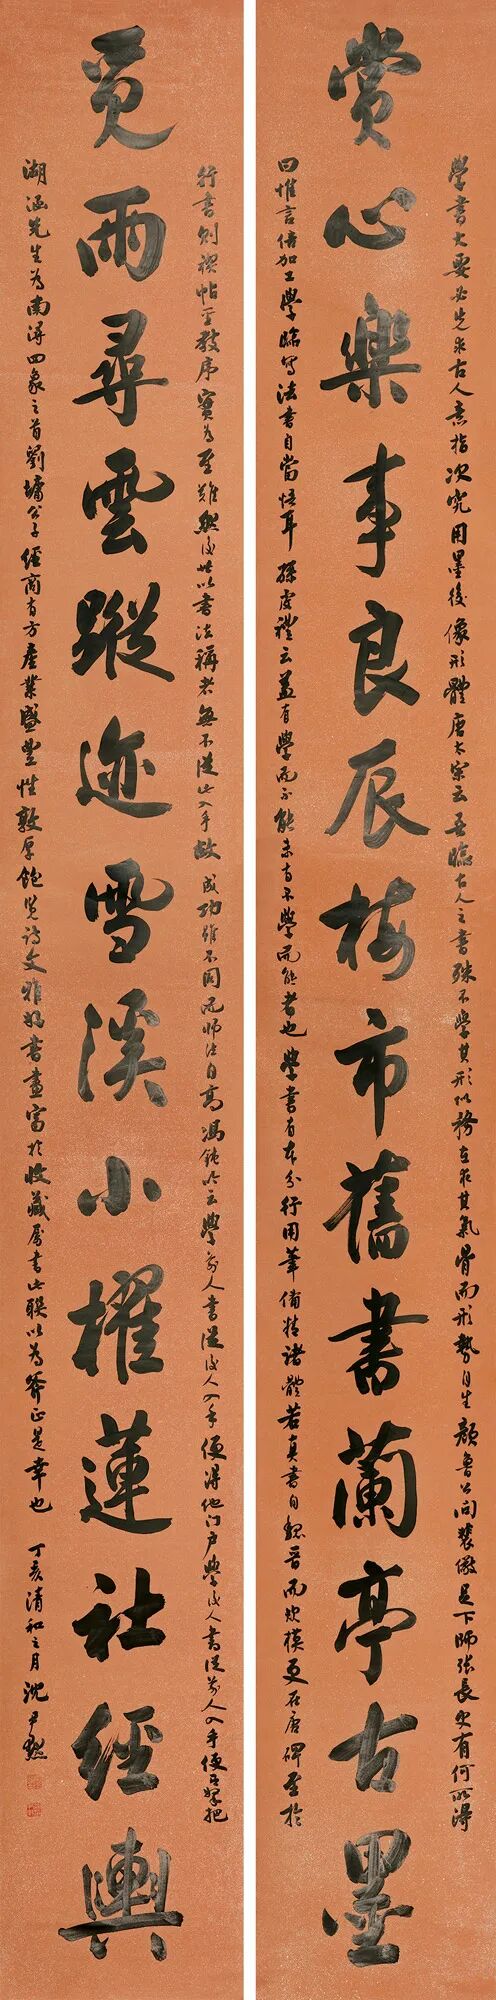 學書大要必先求古人意指次究用墨後像形體唐太宗云吾臨古人之書殊不學其形似務在求其氣骨而形勢自生顏魯公問裴儆足下師張長史有何所得
賞心樂事良辰梅市舊書蘭亭古墨
曰惟言倍加工學臨寫法書自當悟耳 孫虔禮云蓋有學而不能未有不學而能者也學書有本分行用筆備精諸體若真書自魏晉而欧模更在唐碑至於
行書則禊帖至教序實為至難然後世以書法稱者無不從此入手故成功雖不同而師法自高馮鈍吟云學前人書從後人入手便得他門戶學後人書從前人入手便有拏把
覓雨尋雲蹤迹雪溪小櫂蓮社經輿
湖涵先生為南潯四象之首劉墉公子經商有方產業盛豐性敦厚飽覽詩文雅好書畫富於收藏屬書此聯以為斧正是幸也 丁亥清和之月沈尹默